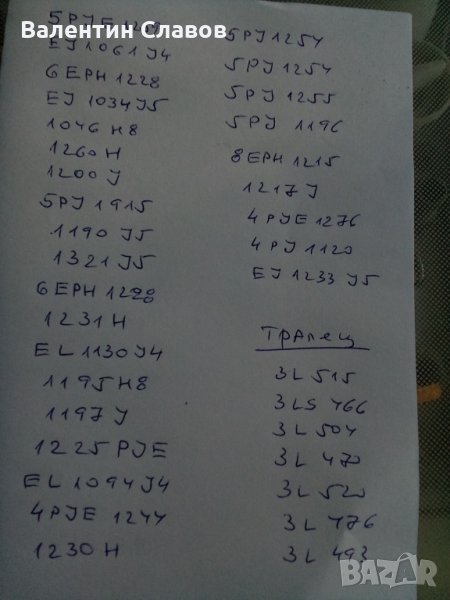 Валентин Славов
5PJE 1200
EJ 1061 J4
6 EPH 1228
EJ 1034 J5
1046 H8
1260 H
1200 J
5PJ 1915
1190 J5
1321 J5
6 EPH 1220
1231 H
EL 1130 J4
1195 H8
1197 J
1225 PJE
EL 1094 J4
4PJE 1244
1230 H
5PJ 1254
5PJ 1254
5PJ 1255
5PJ 1196
8 EPH 1215
1217 J
4PJE 1276
4PJ 1120
EJ 1233 J5
Трапец
3L 515
3LS 466
3L 504
3L 470
3L 520
3L 476
3L 493
BAZAR